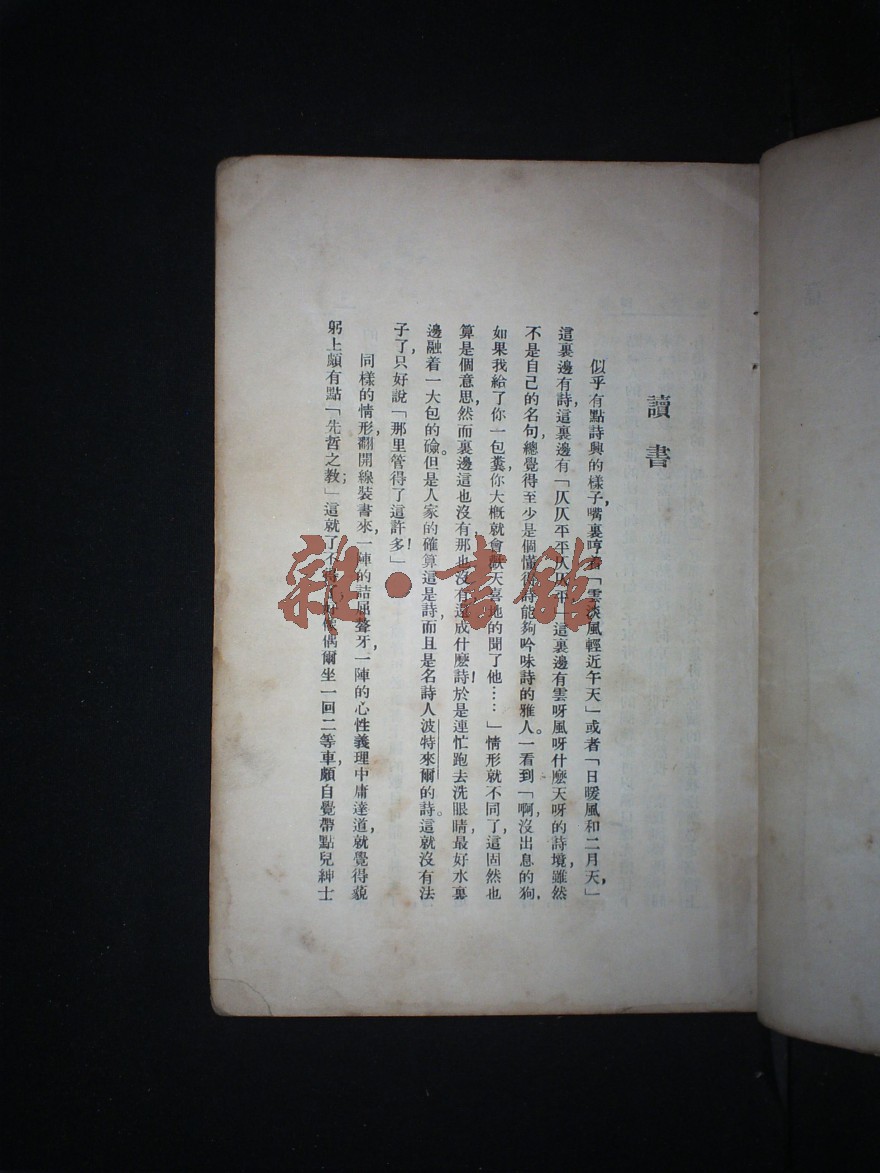 讀書
似乎有點詩興的樣子,嘴裏哼着「雲淡風輕近午天」或者「日暖風和二月天」,
這裏邊有詩,這裏邊有「仄仄平平仄仄平」,這裏邊有雲呀風呀什麽天呀的詩境,雖然
不是自己的名句,總覺得至少是個懂得詩能夠吟味詩的雅人。一看到「啊,沒出息的狗,
如果我給了你一包糞,你大概就會歡天喜地的聞了他……」情形就不同了,這固然也
算是個意思,然而裏邊這也沒有那也沒有,還成什麽詩!於是連忙跑去洗眼睛,最好水裏
邊融着一大包的礆。但是人家的確算這是詩,而且是名詩人波特來爾的詩。這就沒有法
子了,只好說「那里管得了這許多!」
同樣的情形,翻開線裝書來,一陣的詰屈聱牙,一陣的心性義理中庸達道,就覺得藐
躬上頗有點「先哲之教」;這就了不得了,好像偶爾坐一回二等車,頗自覺帶點兒紳士
雜·書館